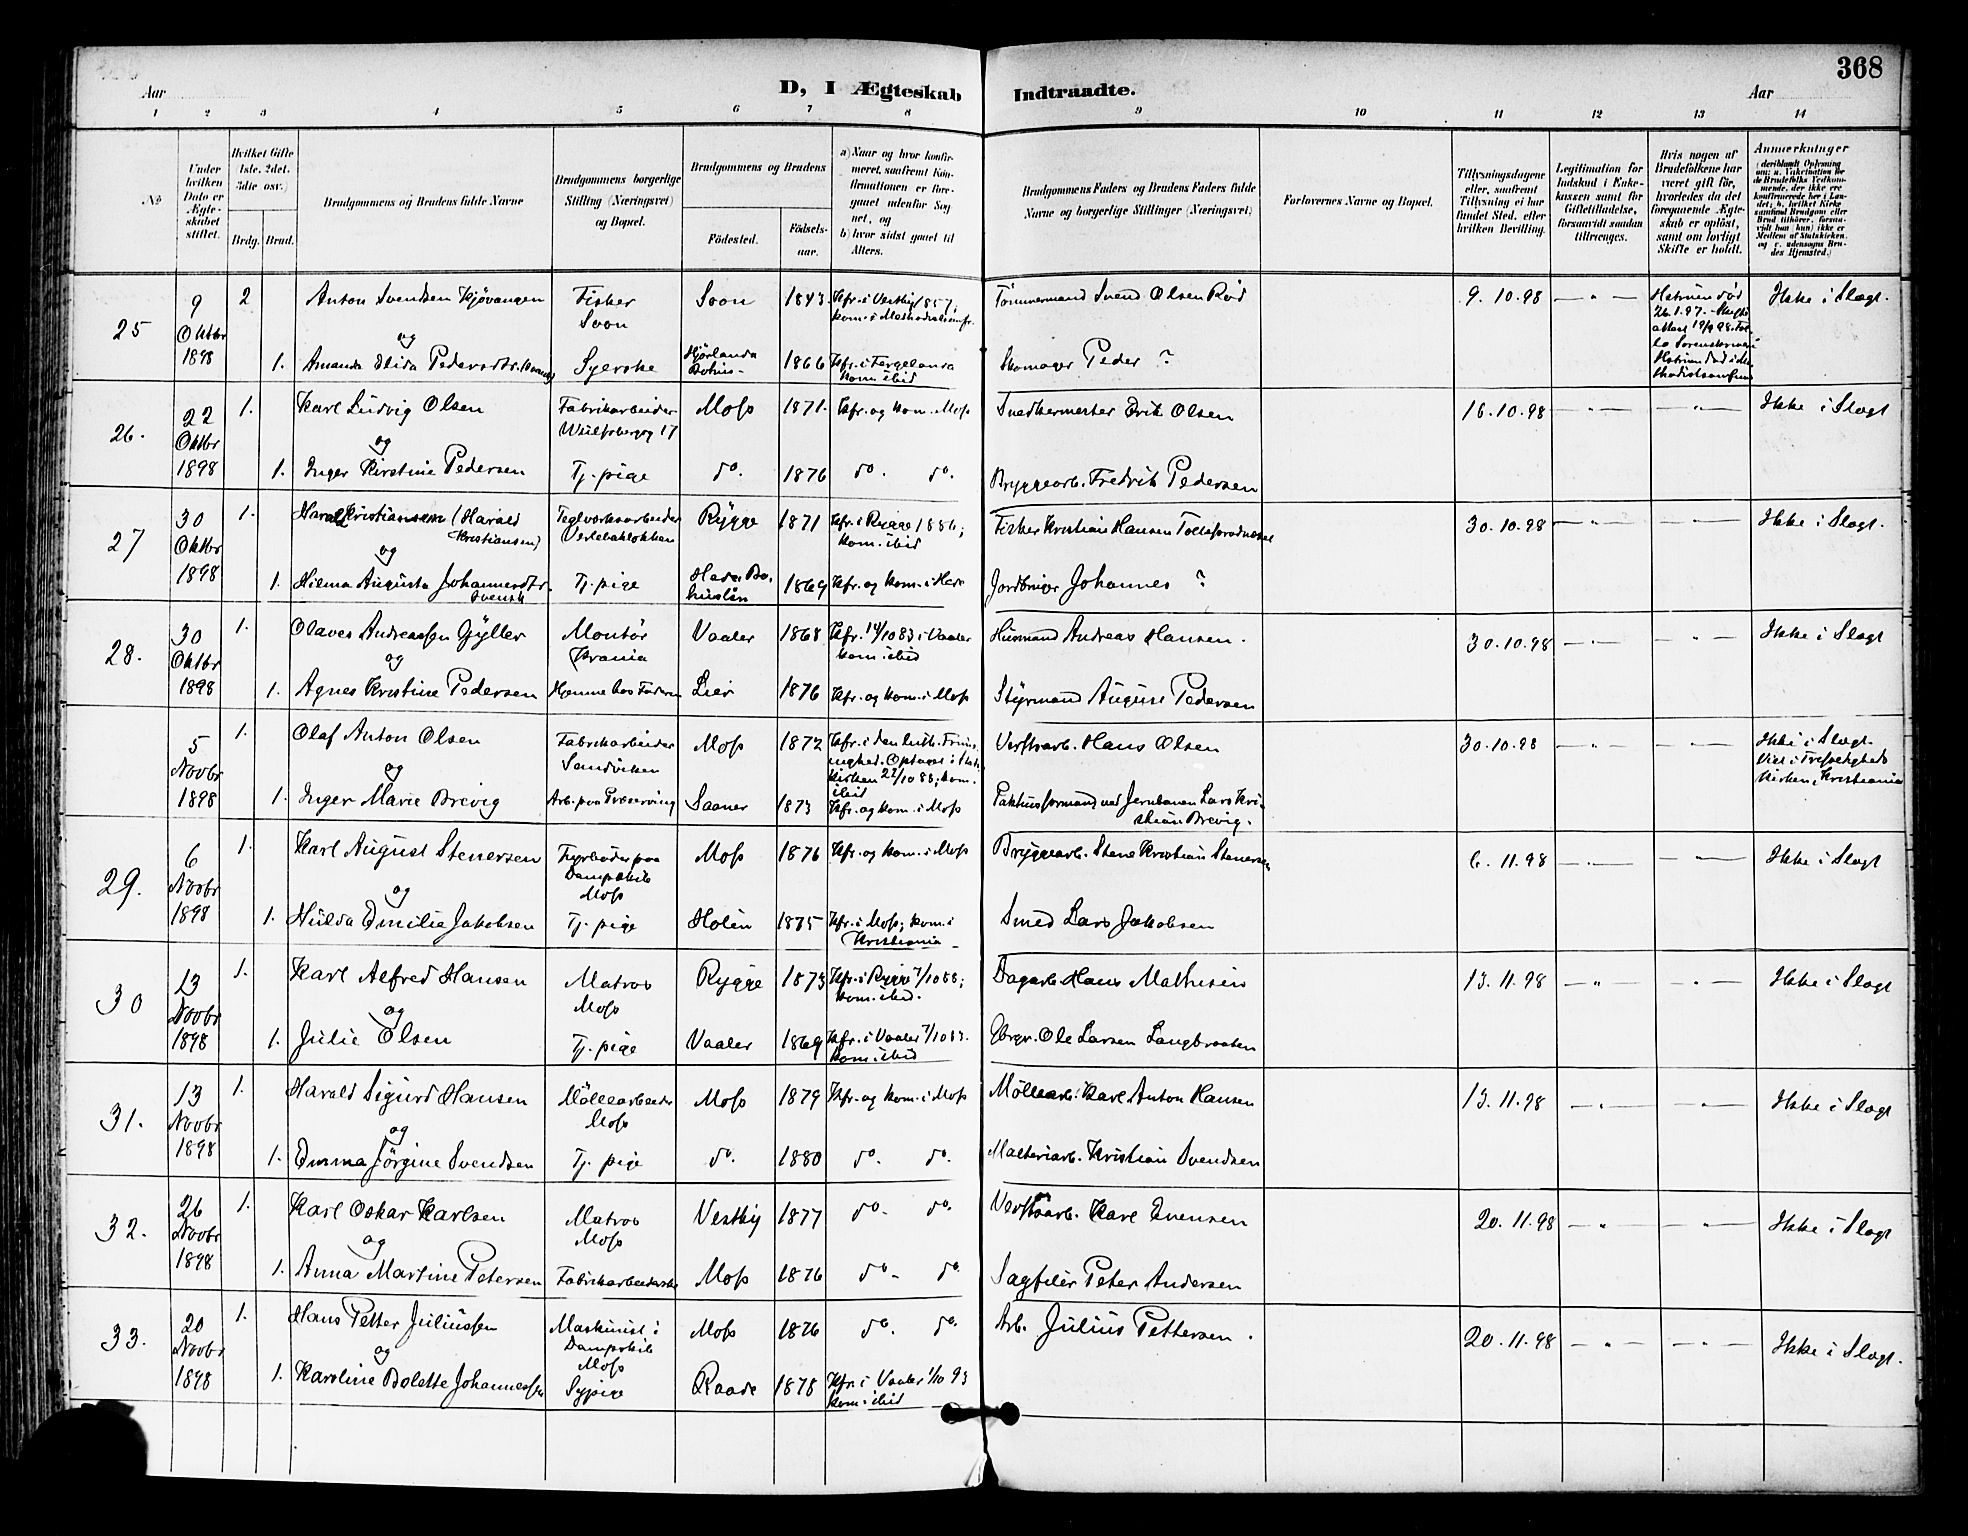 368
Aar
D, I Ægteskab Indtraadte.
Aar
1 2 3 4 5 6 7 8 9 10 11 12 13 14
No
Under hvilken Dato er Ægteskabet stiftet.
Hvilket Gifte 1ste, 2det, 3die osv.)
Brdg. Brud.
Brudgommens og Brudens fulde Navne
Brudgommens borgerlige Stilling (Næringsvei) og Bopæl.
Brudgommens og Brudens
Fødested.
Fødsels-aar.
a) Naar og hvor konfirmeret, samt om Konfirmationen er foregaaet udenfor Sognet, og
b) hvor sidst gaaet til Alters.
Brudgommens Faders og Brudens Faders fulde Navne og borgerlige Stillinger (Næringsvei)
Forlovernes Navne og Bopæl.
Tillysningsdagene eller, saafremt Tillysning ei har fundet Sted, efter hvilken Bevilling.
Legitimation for Indskud i Enkekassen samt for Giftetilladelse, forsaavidt saadan tiltrænges.
Hvis nogen af Brudefolkene har været gift før, hvorledes da det foregaaende Ægteskab er opløst, samt om lovligt Skifte er holdt.
Anmærkninger
25
9 Oktbr 1898
2
Anton Svendsen Kjøvangen
Fisker Soon
Soon
1843.
Kfr. i Vestby 1857;
Tømmermand Svend Olsen Rød
9.10.98
Hstruen død 26.1.97.
Ikke i Slægt.
og
1.
Amanda Elida Pedersdtr.
Syerske
1866
kom. ibid
Skomager Peder ?
26.
22 Oktbr 1898
1.
Karl Ludvig Olsen
Fabrikarbeider
Moss
1871.
Kfr. og kom. i Moss
Snedkermester Erik Olsen
16.10.98
Ikke i Slægt
og
1.
Inger Kirstine Pedersen
Tj. pige
do.
1876
do. do.
Bryggearb. Fredrik Pedersen
27
30 Oktbr 1898
1.
Harald Kristiansen (Harald Kristiansen)
Teglverksarbeider
Rygge
1871
Kfr. i Rygge 1886; kom. ibid
Fisker Kristian Hansen
30.10.98
Ikke i Slægt.
og
1.
Hilma Augusta Johannesdtr. svensk
Tj. pige
1869
Kfr. og kom. i
Jordbruger Johannes ?
28.
30 Oktbr 1898
1.
Olaves Andreassen Gyller
Montør Krania
Vaaler
1868
Kfr. 14/10 83 i Vaaler kom. ibid
Husmand Andreas Hansen.
30.10.98
Ikke i Slægt
og
1.
Agnes Kristine Pedersen
Hjemme hos Faderen
Lier
1876
Kfr. og kom. i Moss
Styrmand August Pedersen
5 Novbr 1898
1.
Olaf Anton Olsen
Fabrikarbeider Sandviken
Moss
1872
Verftsarb. Hans Olsen
30.10.98
Ikke i Slægt. Viet i Trefoldigheds Kirken, Kristiania
og
1.
Inger Marie Brevig
Arb. paa Præserving
Saaner
1873
Kfr. og kom. i Moss
Pakhusformand ved Jernbanen Lars Kristian Brevig.
29.
6 Novbr 1898
1.
Karl August Stenersen
Fyrbøder paa Dampskib Moss
Moss
1876
Kfr. og kom. i Moss
Bryggearb. Stene Kristian Stenersen
6.11.98
Ikke i Slægt
og
1.
Hulda Emilie Jakobsen
Tj. pige
Holen
1875
Kfr. i Moss; kom. i Kristiania
Smed Lars Jakobsen
30
13 Novbr 1898
1.
Karl Alfred Hansen
Matros Moss
Rygge
1873
Kfr. i Rygge 7/10 88; kom. ibid.
Dagarb. Hans Mathisen
13.11.98
Ikke i Slægt
og
1.
Julie Olsen
Tj. pige
Vaaler
1869
Kfr. i Vaaler 7/10 83. kom. ibid
Gbrgr. Ole Larsen Langbraaten
31.
13 Novbr 1898
1.
Harald Sigurd Hansen
Møllearbeider Moss
Moss
1879
Kfr. og kom. i Moss
Møllearb. Karl Anton Hansen
13.11.98
Ikke i Slægt
og
1.
Emma Jørgine Svendsen
Tj. pige
do.
1880
do. do.
Malteriarb. Kristian Svendsen
32.
26 Novbr 1898
1.
Karl Oskar Karlsen
Matros Moss
Vestby
1877
do. do.
Verftsarb. Karl Evensen
20.11.98
Ikke i Slægt
og
1.
Anna Martine Petersen
Fabrikarbeiderske
Moss
1876
do. do.
Sagfiler Peter Andersen
33.
20 Novbr 1898
1.
Hans Petter Juliussen
Maskinist i Dampskib Moss
Moss
1876
do. do.
Arb. Julius Pettersen.
20.11.98
Ikke i Slægt.
og
1.
Karoline Bolette Johannessen
Sypige
Raade
1878
Kfr. i Vaaler 1/10 93 kom. ibid